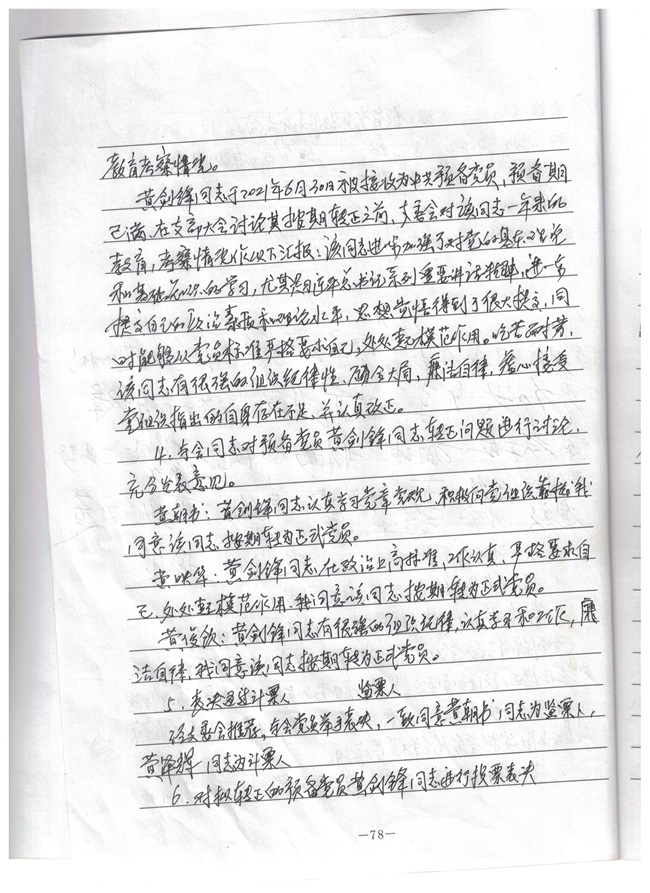 教育考察情况。
黄剑锋同志于2021年6月30日被接收为中共预备党员，预备期
已满，在支部大会讨论其按期转正之前，支委会对该同志一年来的
教育，考察情况作以下汇报：该同志进一步加强了对党的基本理论
和基础知识的学习，尤其是习近平总书记系列重要讲话精神，进一步
提高自己的政治素质和理论水平，思想觉悟得到了很大提高，同
时能够以党员标准严格要求自己，处处起模范作用。吃苦耐劳，
该同志有很强的组织纪律性、顾全大局，廉洁自律，虚心接受
党组织指出的自身存在不足，并认真改正。
4、与会同志对预备党员黄剑锋同志转正问题进行讨论，
充分发表意见。
黄朝书：黄剑锋同志认真学习党章党规，积极向党组织靠拢，我
同意该同志按期转为正式党员。
黄映华：黄剑锋同志在政治上高标准，工作认真，严格要求自
己，处处起模范作用，我同意该同志按期转为正式党员。
黄俊钦：黄剑锋同志有很强的组织纪律，认真学习和工作，廉
洁自律，我同意该同志按期转为正式党员。
5、表决通过计票人 监票人
经支委会推荐，与会党员举手表决，一致同意黄朝书同志为监票人，
黄泽群同志为计票人
6、对拟转正的预备党员黄剑锋同志进行投票表决
—78—